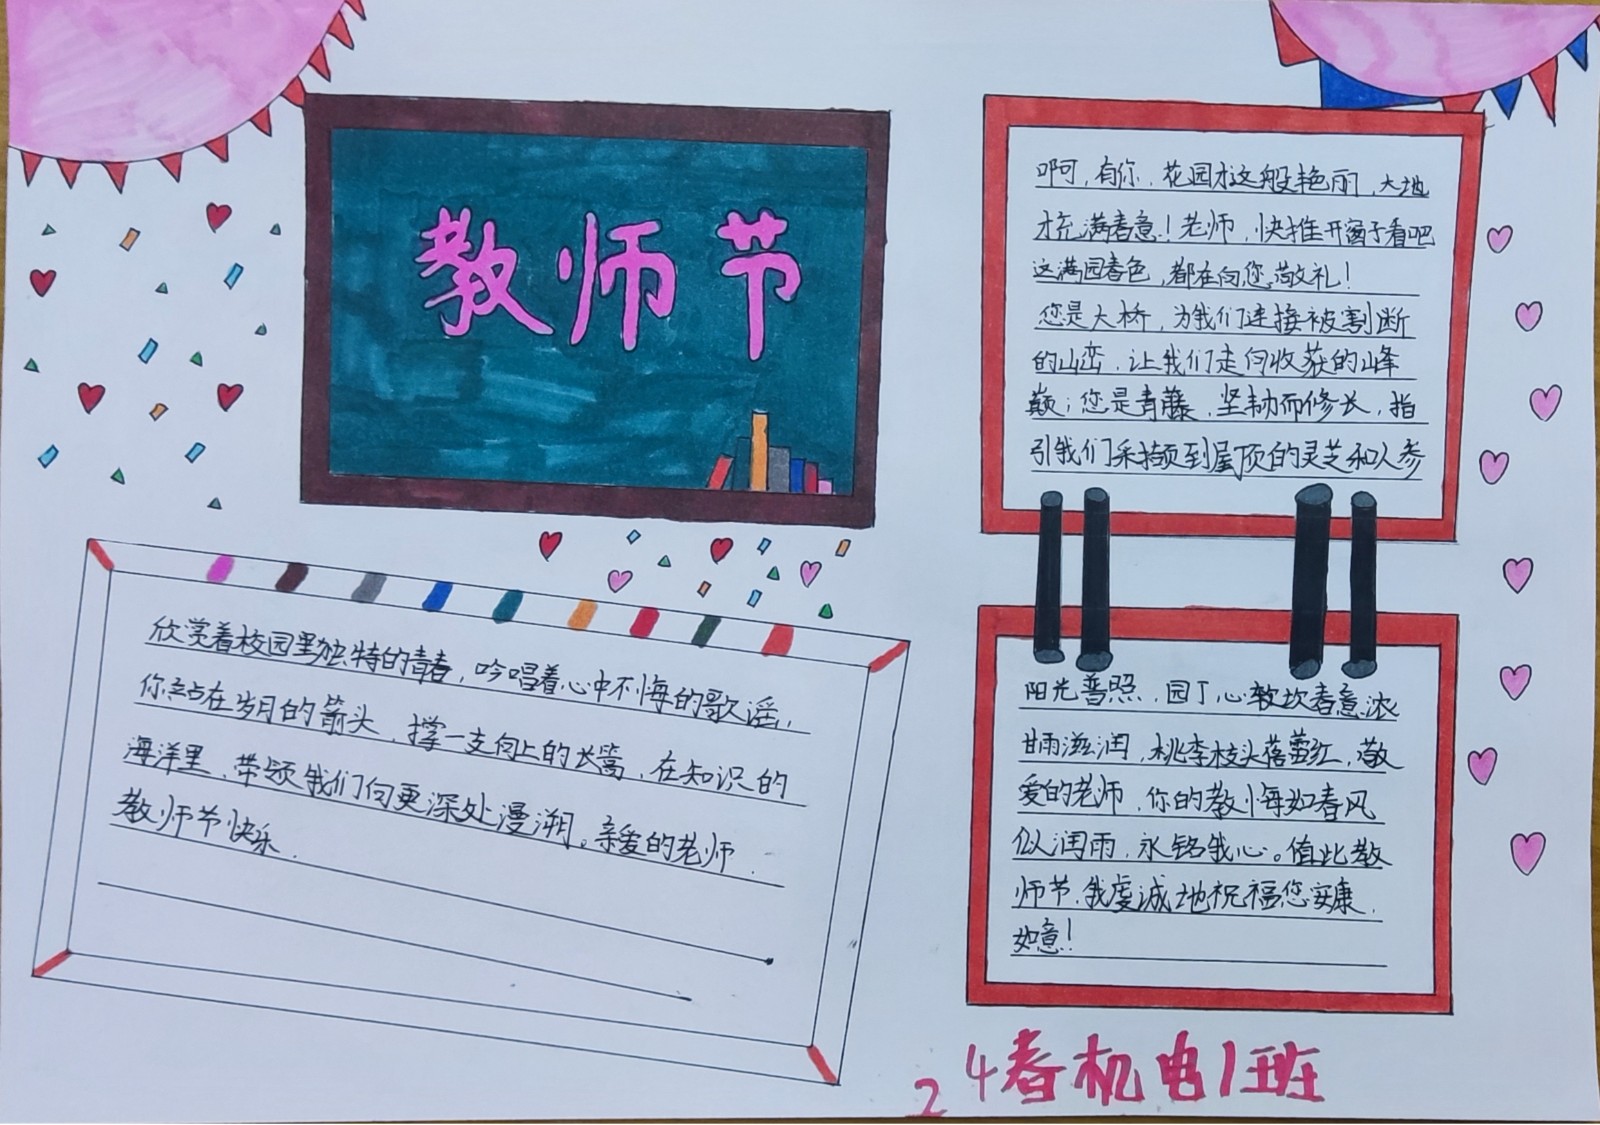 教师节
啊，有你，花园才这般艳丽，大地
才充满春意！老师，快推开窗子看吧
这满园春色，都在向您敬礼！
您是大桥，为我们连接被割断
的山峦，让我们走向收获的峰
巅；您是青藤，坚韧而修长，指
引我们采撷到崖顶的灵芝和人参
欣赏着校园里独特的青春，吟唱着心中不悔的歌谣，
你站在岁月的箭头，撑一支向上的长篙，在知识的
海洋里，带领我们向更深处漫溯。亲爱的老师．
教师节快乐．
阳光普照，园丁心教坎春意浓
甘雨滋润，桃李枝头蓓蕾红，敬
爱的老师，你的教悔如春风
似润雨，永铭我心。值此教
师节，我虔诚地祝福您安康，
如意！
24春机电1班